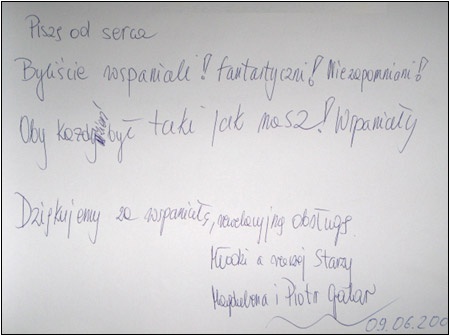 Piszę od serca
Byliście wspaniali! Fantastyczni! Niezapomniani!
Oby każdy był taki jak nasz! Wspaniały
Dziękujemy za wspaniałą, rewelacyjną obsługę.
Młodzi a raczej Starzy
Magdalena i Piotr
09.06.200